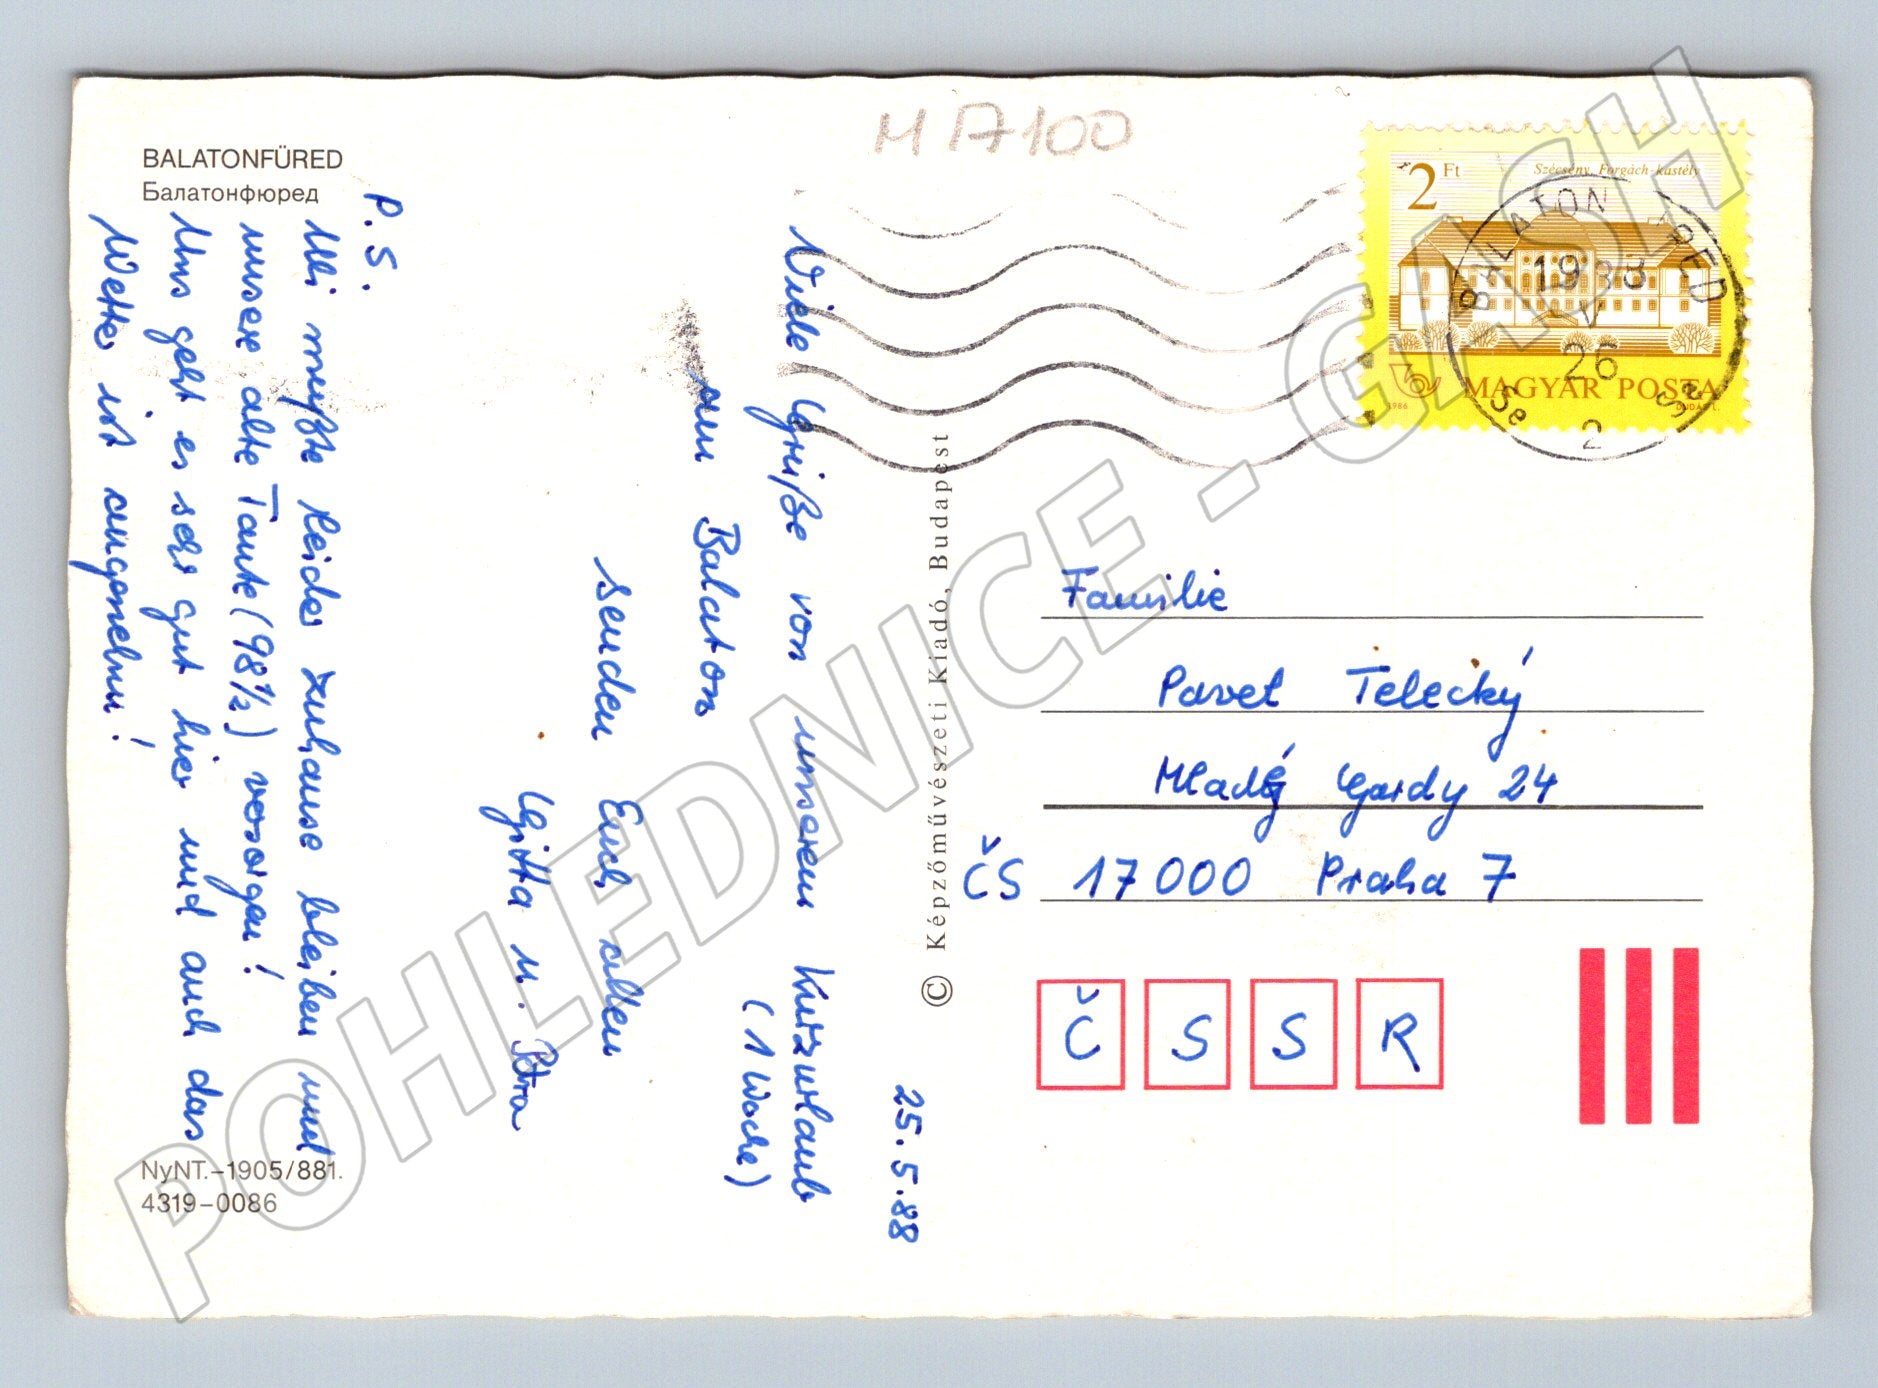 BALATONFÜRED
Балатонфюред
M A100
25.5.88
Viele Grüße von unserem Kurzurlaub
(1 Woche)
am Balaton
senden Euch allen
Gitta u. Petra
P.S.
Uli mußte leider zuhause bleiben und
unsere alte Tante (98 1/2) vosorgen!
Uns geht es sehr gut hier und auch das
Wetter ist angenehm!
NyNT.–1905/881.
4319–0086
© Képzőművészeti Kiadó, Budapest
2 Ft
Szécsény, Forgách-kastély
MAGYAR POSTA
1986
BALATON RED
1988
V
26
2
Familie
Pavel Telecký
Mladé Gardy 24
ČS 17000 Praha 7
Č S S R
POHLEDNICE - GASH